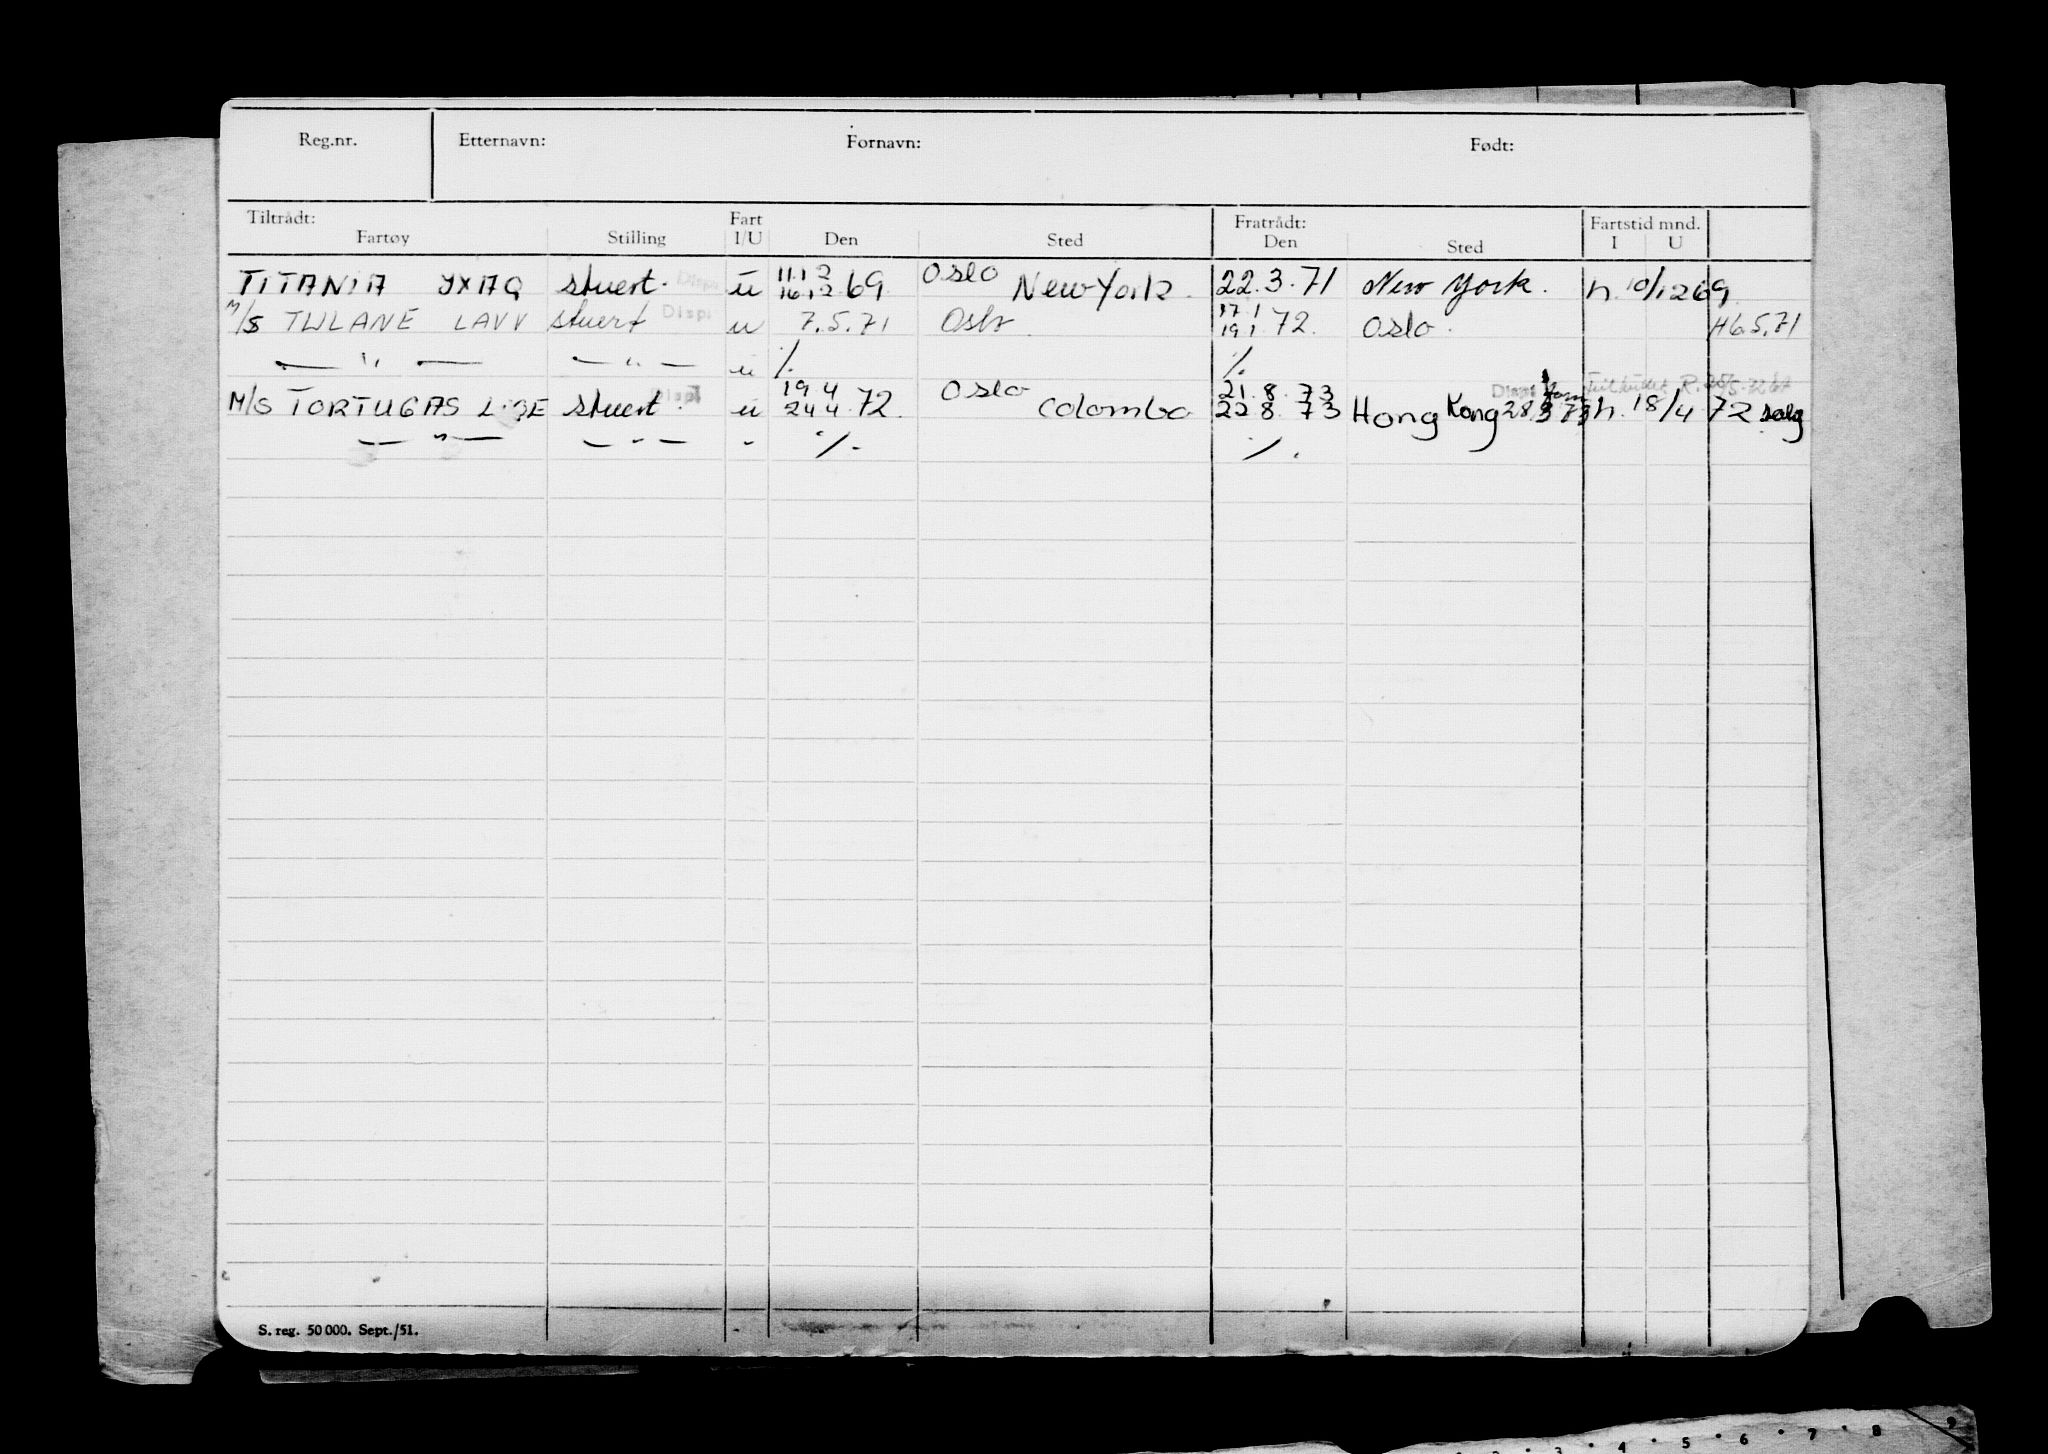 Reg.nr. Etternavn: Fornavn: Født:
Tiltrådt: Fart Fratrådt: Fartstid mnd.
Fartøy Stilling I/U Den Sted Den Sted I U
TITANIA JXAQ stuert. Disp. u 11.12 16.12 69 Oslo New York. 22.3.71 New York. h. 10/12 69
M/S TULANE LAVV stuert Disp. u 7.5.71 Oslo 17.1 19.1 72. Oslo. H6.5.71
— " — — " — u ⁒ ⁒
M/S TORTUGAS stuert. Disp. u 19 4 24 4 72. Oslo Colombo 21.8.73 22 8. 73 Hong Kong Disp. h. 18/4 72 salg
— " — — " — " ⁒ ⁒
S. reg. 50 000. Sept./51.
3 4 5 6 7 8 9